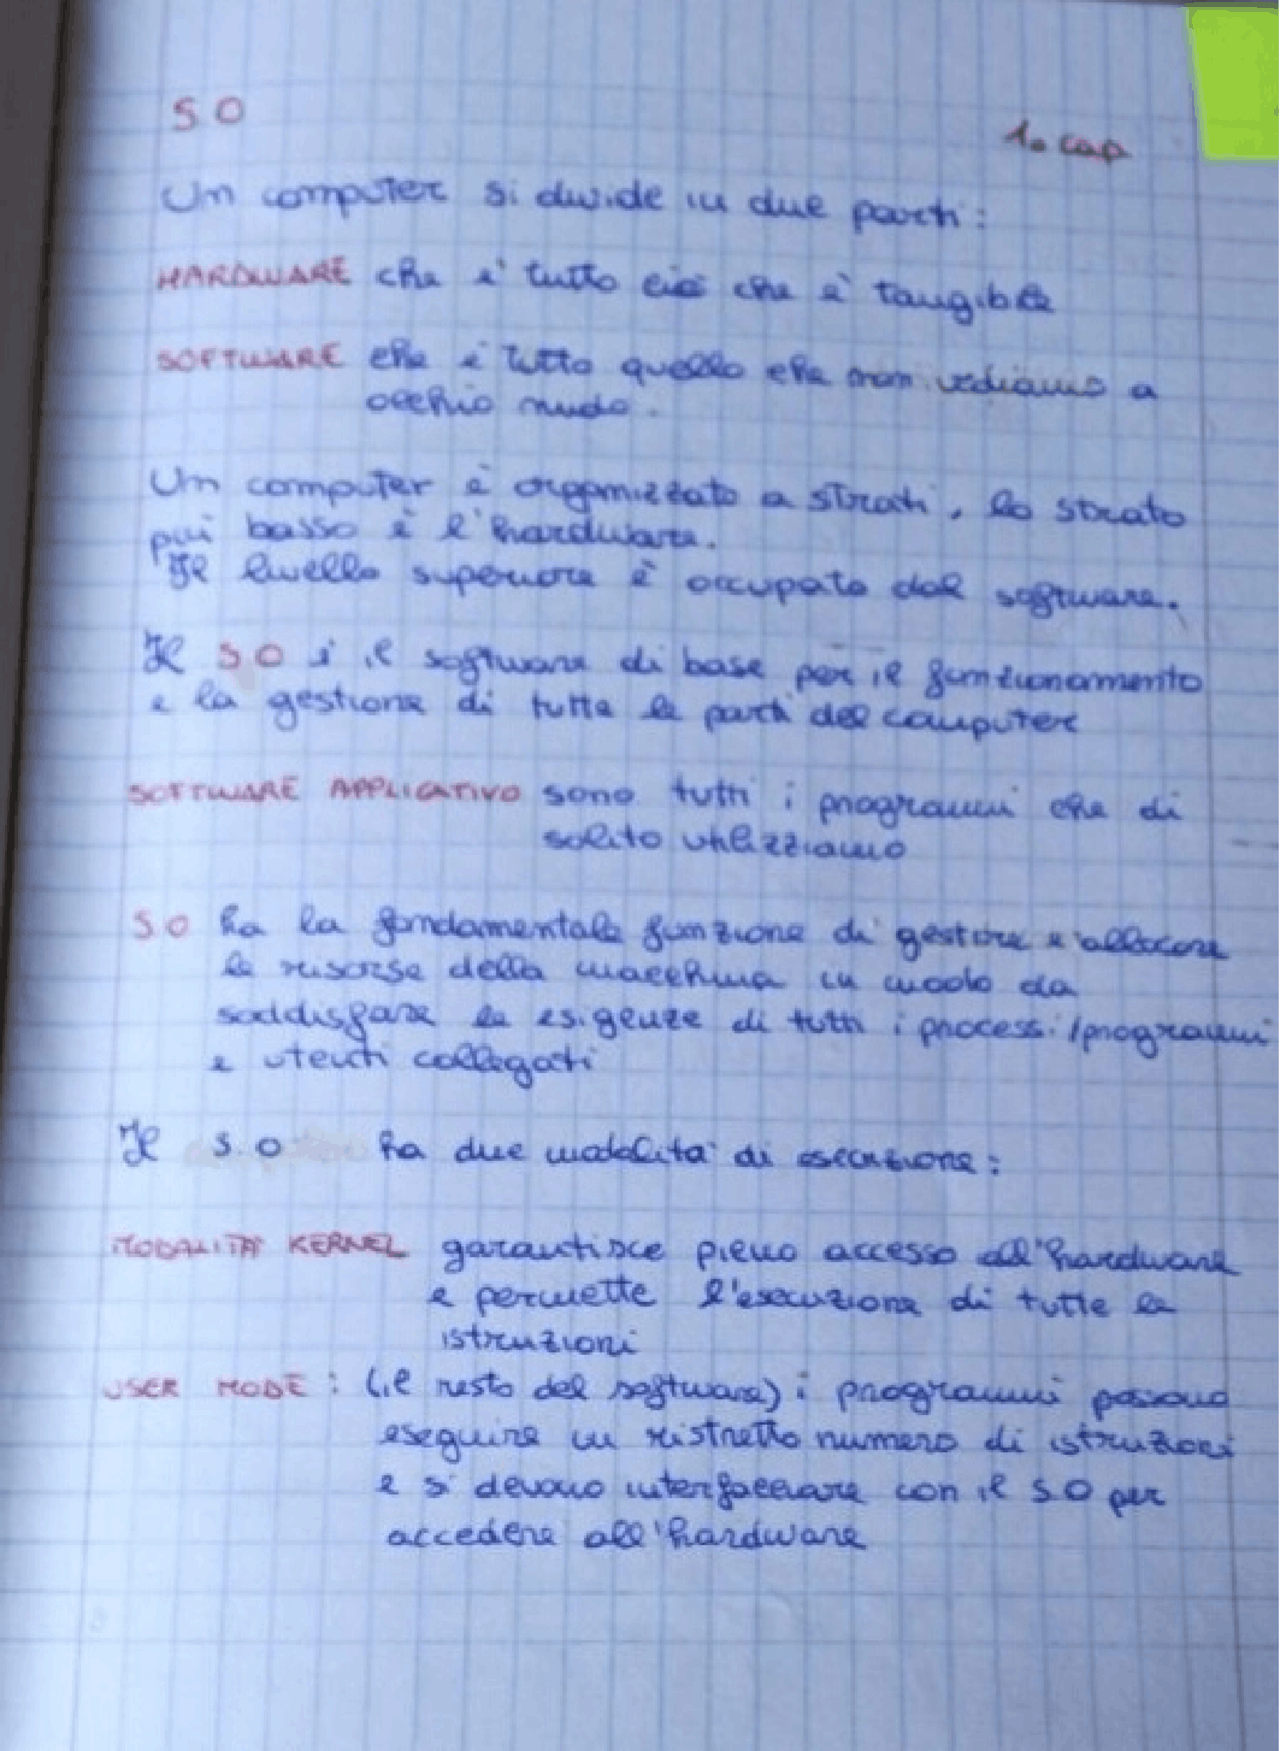 S O
1. cap
Un computer si divide in due parti:
HARDWARE che è tutto ciò che è tangibile
SOFTWARE che è tutto quello che non vediamo a
occhio nudo.
Un computer è organizzato a strati, lo strato
più basso è l'hardware.
Il livello superiore è occupato dal software.
Il SO è il software di base per il funzionamento
e la gestione di tutte le parti del computer
SOFTWARE APPLICATIVO sono tutti i programmi che di
solito utilizziamo
SO ha la fondamentale funzione di gestire e allocare
le risorse della macchina in modo da
soddisfare le esigenze di tutti i processi/programmi
e utenti collegati
Il S.O ha due modalità di esecuzione:
MODALITÀ KERNEL garantisce pieno accesso all'hardware
e permette l'esecuzione di tutte le
istruzioni
USER MODE: (il resto del software) i programmi possono
eseguire un ristretto numero di istruzioni
e si devono interfacciare con il SO per
accedere all'hardware